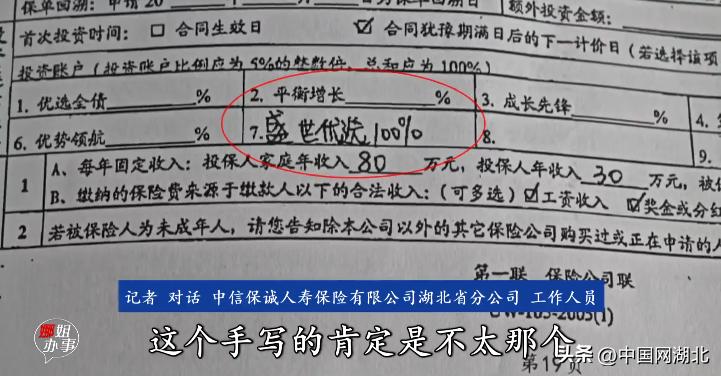 保单回溯:申请 20
额外投资金额:
首次投资时间: □ 合同生效日 ☑ 合同犹豫期满日后的下一计价日 (若选择该项
投资账户(投资账户比例应为5%的整数倍,总和应为100%)
1. 优选全债 % 2. 平衡增长 % 3. 成长先锋 % 4.
6. 优势领航 % 7. 盛世优选 100% 8. 9.
1 A、每年固定收入: 投保人家庭年收入 80 万元, 投保人年收入 30 万元, 被
B、缴纳的保险费来源于缴款人以下的合法收入: (可多选) ☑ 工资收入 ☑ 奖金或分红
2 若被保险人为未成年人, 请您告知除本公司以外的其它保险公司购买过或正在申请的人
第一联 保险公司联
UW-105-2005(1)
第19页
记者 对话 中信保诚人寿保险有限公司湖北省分公司 工作人员
娜姐办事
这个手写的肯定是不太那个
头条@中国网湖北